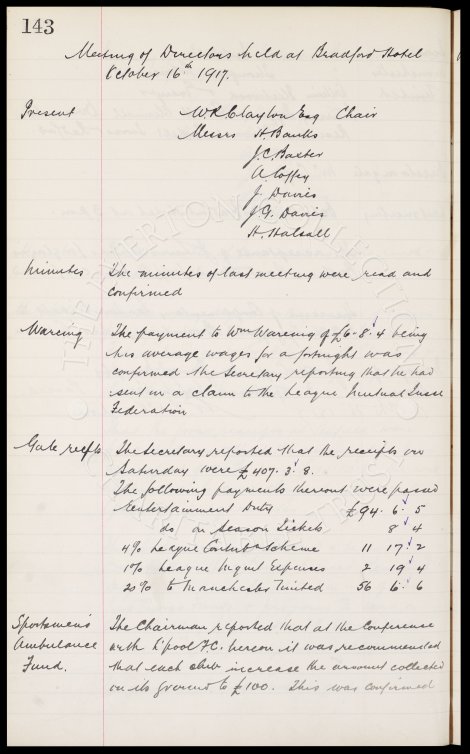 143
Meeting of Directors held at Bradford Hotel
October 16th 1917.
Present W.R. Clayton Esq Chair
Messrs H. Banks
J.C. Baxter
A. Coffey
J. Davies
J.G. Davies
H. Halsall
Minutes The minutes of last meeting were read and
confirmed
Wareing The payment to Wm Wareing of £6. 8. 4 being
his average wages for a fortnight was
confirmed the Secretary reporting that he had
sent in a claim to the League Mutual Insce
Federation
Gate recpts The Secretary reported that the receipts on
Saturday were £407. 3. 8.
The following payments thereout were passed
Entertainment Duty £94. 6. 5
do on Season Tickets 8 4
4% League Contribn Scheme 11 17 2
1% League Mgmt Expenses 2 19 4
20% to Manchester United 56 6 6
Sportsmen's The Chairman reported that at the Conference
Ambulance with L'pool F.C. hereon it was recommended
Fund. that each club increase the amount collected
on its ground to £100. This was confirmed
THE EVERTON COLLECTION